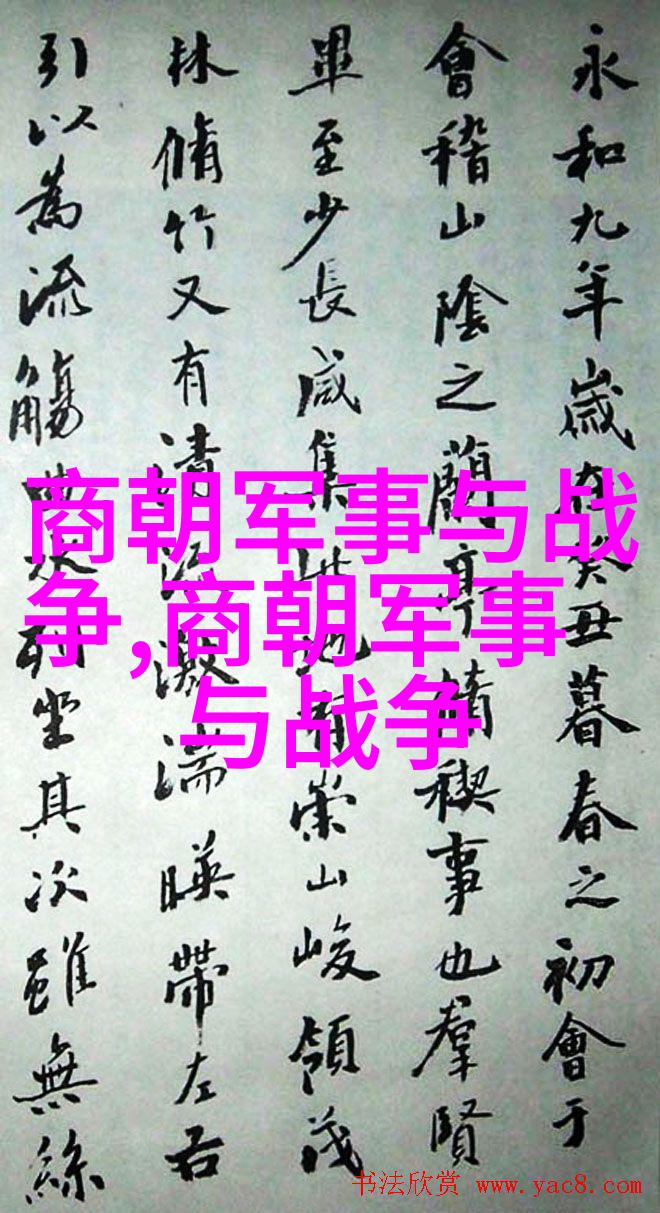 永和九年歲在癸丑暮春之初會于
會稽山陰之蘭亭脩稧事也羣賢
畢至少長咸集此地有崇山峻領茂
林脩竹又有清流激湍暎帶左右
引以為流觴曲水列坐其次雖無絲
商朝军事与战
争,商朝军事
与战争
书法欣赏 www.yac8.com